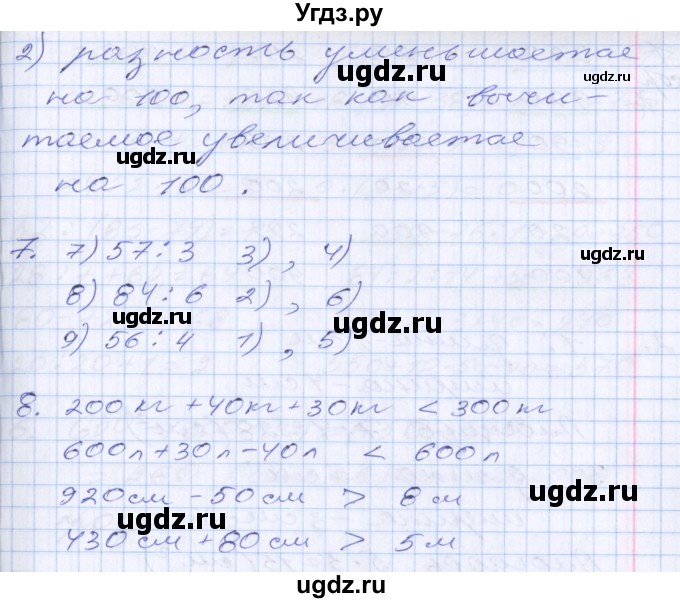 Угдз.ру
2) разность уменьшается
на 100, так как вычи-
таемое увеличивается
на 100.
7. 7) 57:3 3), 4)
8) 84:6 2), 6)
9) 56:4 1), 5)
8. 200 кг + 40 кг + 30 кг < 300 кг
600 л + 30 л - 40 л < 600 л
920 см - 50 см > 8 м
430 см + 80 см > 5 м
ugdz.ru
ugdz.ru
ugdz.ru
ugdz.ru
ugdz.ru
ugdz.ru
ugdz.ru
ugdz.ru
ugdz.ru
ugdz.ru
ugdz.ru
ugdz.ru
ugdz.ru